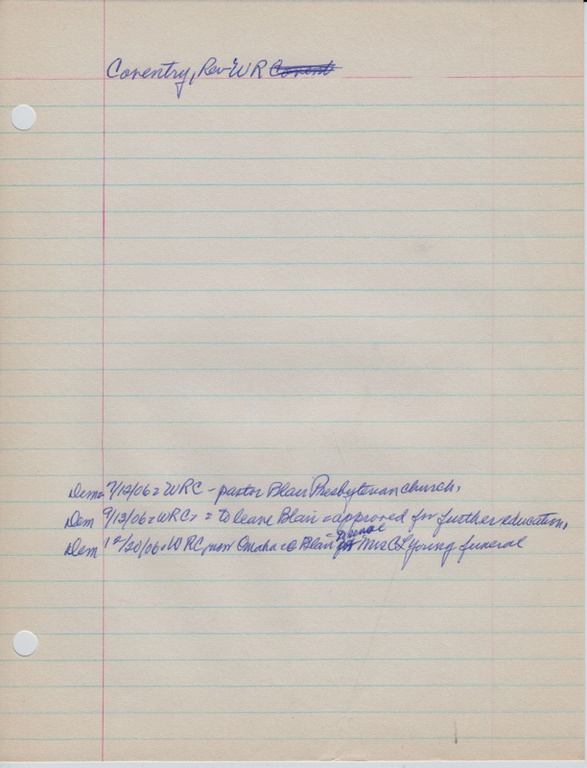 Coventry, Rev W R
Dem 7/12/06 = WRC - pastor Blair Presbyterian church.
Dem 9/13/06 = WRC = to leave Blair = approved for further education.
Dem 12/20/06 = WRC now Omaha @ Blair Mrs C L Young funeral